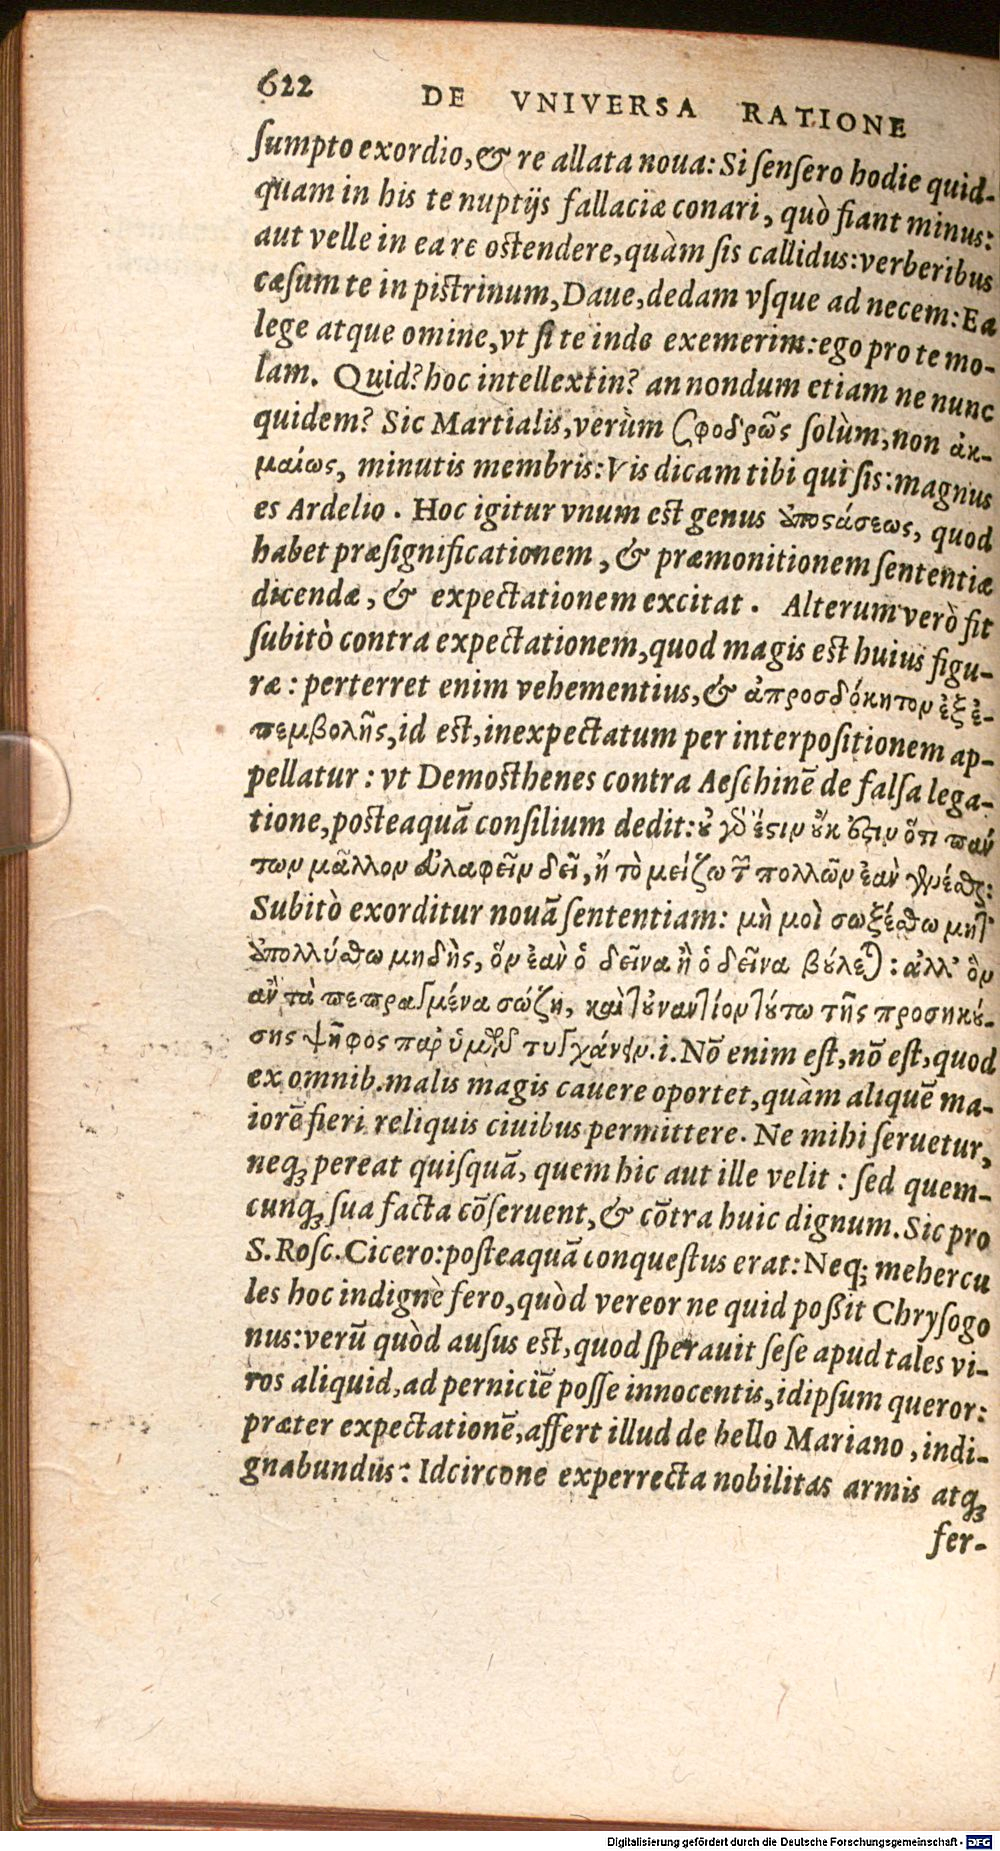 622 DE VNIVERSA RATIONE
ſumpto exordio, & re allata noua: Si ſenſero hodie quid-
quam in his te nuptijs fallaciæ conari, quò fiant minus:
aut velle in ea re ostendere, quàm ſis callidus: verberibus
cæſum te in pistrinum, Daue, dedam vſque ad necem: Ea
lege atque omine, vt ſi te inde exemerim: ego pro te mo-
lam. Quid? hoc intellextin? an nondum etiam ne nunc
quidem? Sic Martialis, verùm ςφοδρῶς ſolùm, non ἀκ-
μαίως, minutis membris: Vis dicam tibi qui ſis: magnus
es Ardelio. Hoc igitur vnum est genus ὑποςάσεως, quod
habet præſignificationem, & præmonitionem ſententiæ
dicendæ, & expectationem excitat. Alterum verò fit
ſubitò contra expectationem, quod magis est huius figu-
ræ: perterret enim vehementius, & ἀπροσδόκητον ἐξ ἐ-
πεμβολῆς, id est, inexpectatum per interpoſitionem ap-
pellatur: vt Demosthenes contra Aeſchinē de falſa lega-
tione, posteaquā conſilium dedit: οὐ γὰρ ἔςιν οὐκ ἔςιν ὅτι πάν
των μᾶλλον εὐλαβεῖν δεῖ, ἢ τὸ μείζω τῶν πολλῶν ἐᾶν γενέσθαι:
Subitò exorditur nouā ſententiam: μὴ μοὶ σωζέσθω μητ'
ἀπολλύσθω μηδεὶς, ὃν ἐὰν ὁ δεῖνα ἢ ὁ δεῖνα βούλεται: ἀλλ' ὃν
ἂν τὰ πεπραγμένα σώζῃ, καὶ τουναντίον τούτῳ τῆς προσηκού-
σης ψῆφος παρ' ὑμῶν τυγχάνειν. i. Nō enim eſt, nō eſt, quod
ex omnib. malis magis cauere oportet, quàm aliquē ma-
iorē fieri reliquis ciuibus permittere. Ne mihi ſeruetur,
neq; pereat quiſquā, quem hic aut ille velit: ſed quem-
cunq; ſua facta cōſeruent, & cōtra huic dignum. Sic pro
S. Roſc. Cicero: poſteaquā conqueſtus erat: Neq; mehercu
les hoc indignè fero, quòd vereor ne quid poßit Chryſogo
nus: verū quòd auſus est, quod ſperauit ſeſe apud tales vi-
ros aliquid, ad perniciē poſſe innocentis, id ipſum queror:
præter expectationē, affert illud de bello Mariano, indi-
gnabundus: Idcircone experrecta nobilitas armis atq;
fer-
Digitalisierung gefördert durch die Deutsche Forschungsgemeinschaft - DFG